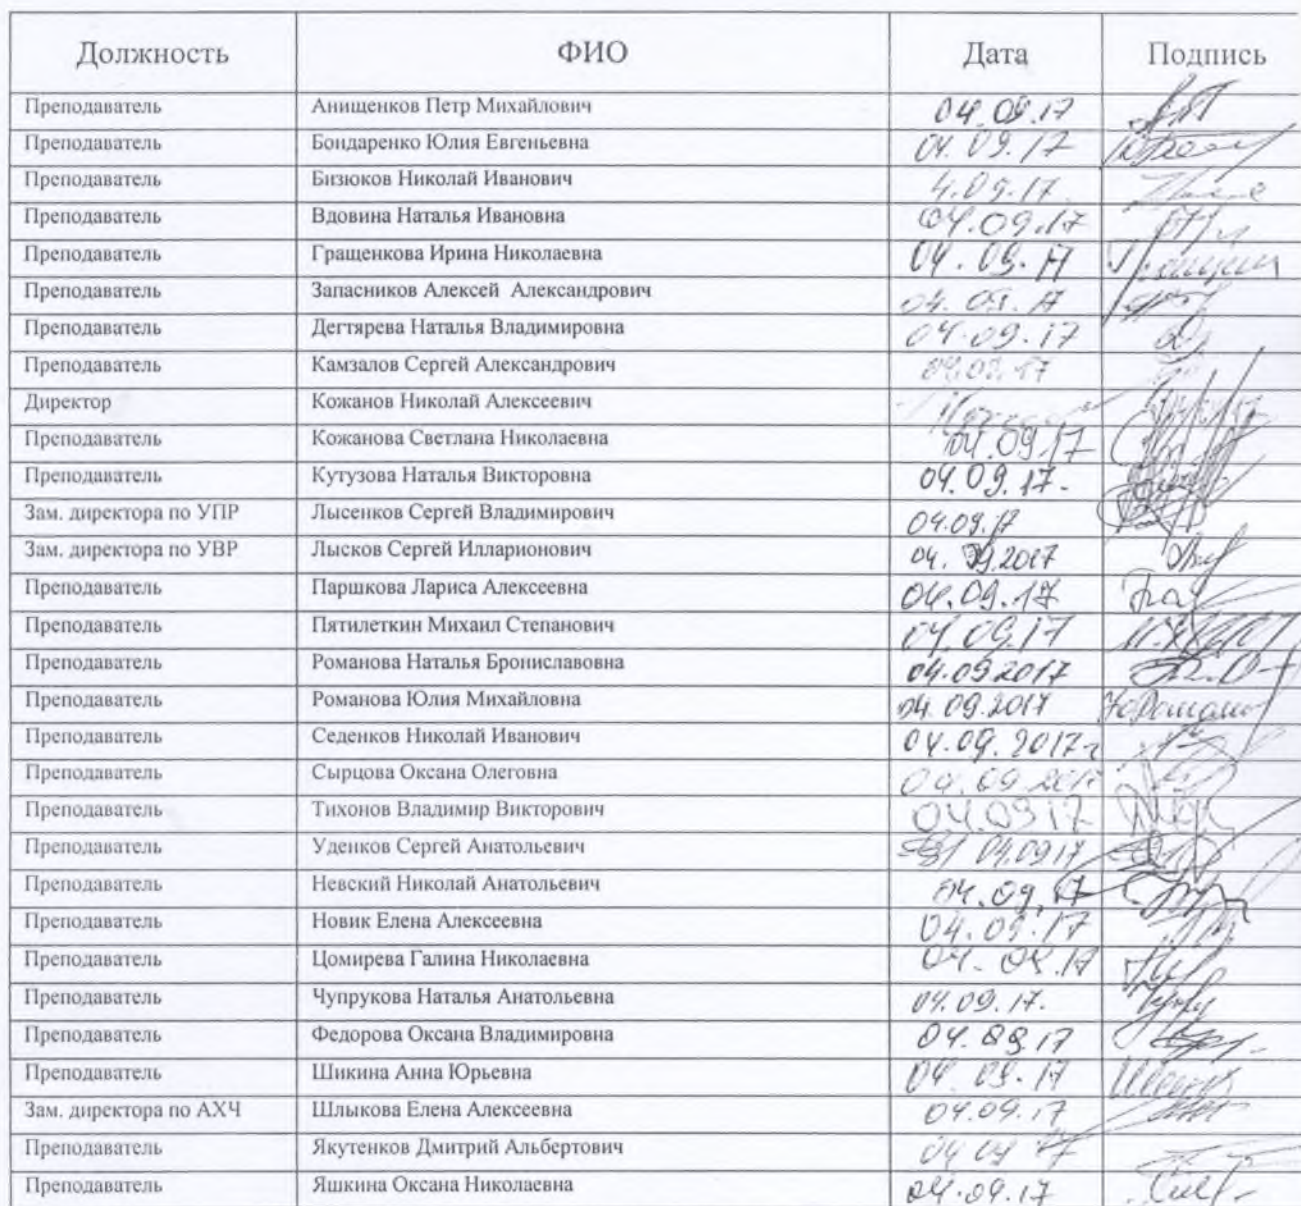 Должность ФИО Дата Подпись
Преподаватель Анищенков Петр Михайлович 04.09.17
Преподаватель Бондаренко Юлия Евгеньевна 04.09.17
Преподаватель Бизюков Николай Иванович 4.09.17
Преподаватель Вдовина Наталья Ивановна 04.09.17
Преподаватель Гращенкова Ирина Николаевна 04.09.17
Преподаватель Запасников Алексей Александрович 04.09.17
Преподаватель Дегтярева Наталья Владимировна 04.09.17
Преподаватель Камзалов Сергей Александрович 04.09.17
Директор Кожанов Николай Алексеевич
Преподаватель Кожанова Светлана Николаевна 04.09.17
Преподаватель Кутузова Наталья Викторовна 04.09.17.
Зам. директора по УПР Лысенков Сергей Владимирович 04.09.17
Зам. директора по УВР Лысков Сергей Илларионович 04.09.2017
Преподаватель Паршкова Лариса Алексеевна 04.09.17
Преподаватель Пятилеткин Михаил Степанович 04.09.17
Преподаватель Романова Наталья Брониславовна 04.09.2017
Преподаватель Романова Юлия Михайловна 04.09.2017
Преподаватель Седенков Николай Иванович 04.09.2017г
Преподаватель Сырцова Оксана Олеговна 04.09.2017
Преподаватель Тихонов Владимир Викторович 04.09.17
Преподаватель Уденков Сергей Анатольевич 04.09.17
Преподаватель Невский Николай Анатольевич 04.09.17
Преподаватель Новик Елена Алексеевна 04.09.17
Преподаватель Цомирева Галина Николаевна 04.09.17
Преподаватель Чупрукова Наталья Анатольевна 04.09.17.
Преподаватель Федорова Оксана Владимировна 04.09.17
Преподаватель Шикина Анна Юрьевна 04.09.17
Зам. директора по АХЧ Шлыкова Елена Алексеевна 04.09.17
Преподаватель Якутенков Дмитрий Альбертович 04 09 17
Преподаватель Яшкина Оксана Николаевна 04.09.17